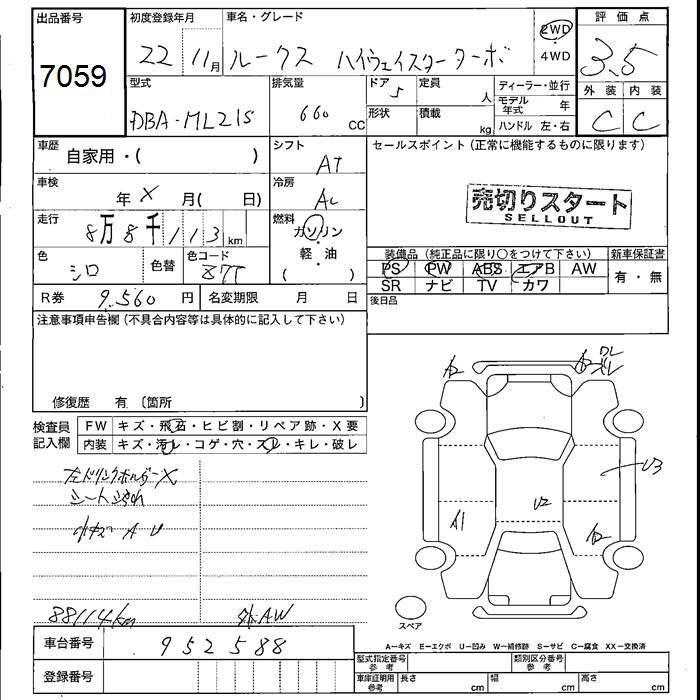 出品番号 初度登録年月 車名・グレード 評価点
7059 22 11月 ルークス ハイウェイスターターボ 2WD・4WD 3.5
型式 排気量 ドア 定員 ディーラー・並行 外装 内装
DBA-ML21S 660 CC 5 人 モデル年式 年 C C
形状 積載 kg ハンドル 左・右
車歴 シフト セールスポイント(正常に機能するものに限ります)
自家用・( ) AT
車検 冷房 売切りスタート
年 X 月( 日) AC SELLOUT
走行 燃料
8万8千113km ガソリン・軽油
色 色替 色コード 装備品(純正品に限り○をつけて下さい) 新車保証書
シロ PS PW ABS エアB AW 有・無
SR ナビ TV カワ
R券 9.560円 名変期限 月 日 後日品
注意事項申告欄(不具合内容等は具体的に記入して下さい)
修復歴 有 〔箇所 〕
検査員記入欄 FW キズ・飛石・ヒビ割・リペア跡・X要
内装 キズ・汚レ・コゲ・穴・スレ・キレ・破レ
左ドリンクホルダーX
シート汚れ
小キズ A U
A2 A2
U3
U2
A1 A2
88114km 外AW
スペア
車台番号 952588
A-キズ E-エクボ U-凹み W-補修跡 S-サビ C-腐食 XX-交換済
登録番号 型式指定番号 参考 類別区分番号 参考
車庫証明用 参考 長さ cm 幅 cm 高さ cm